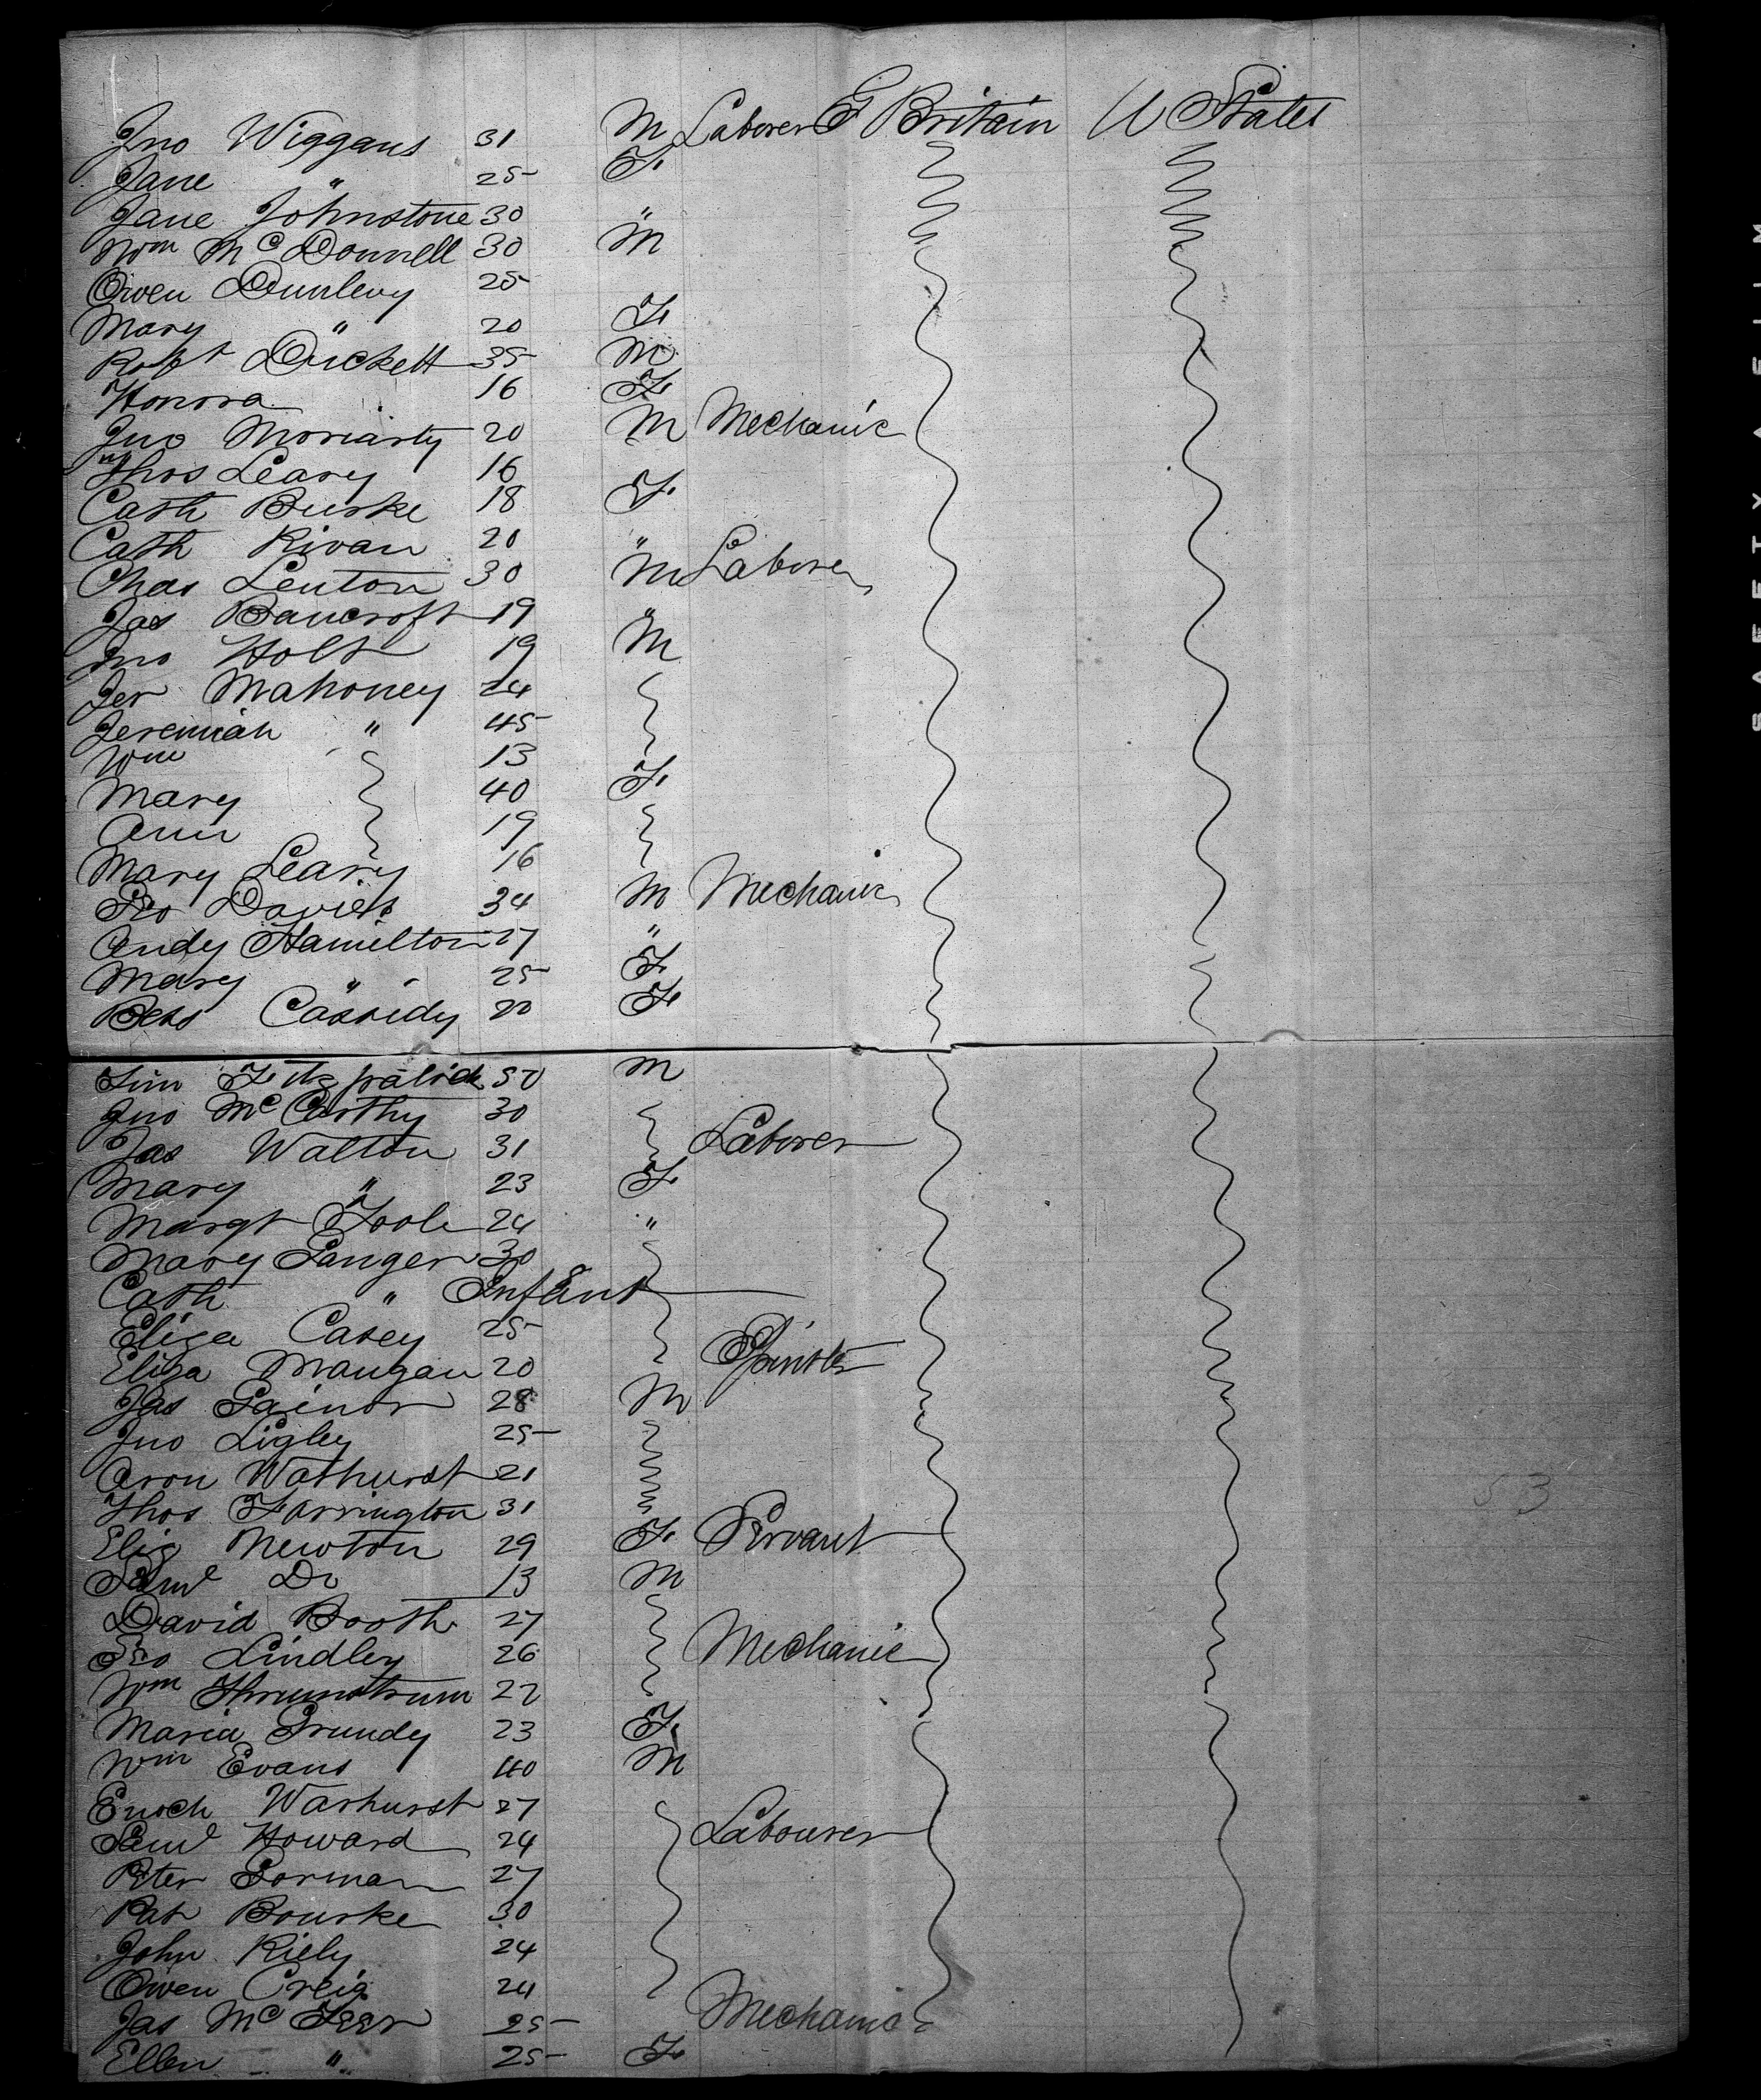 Jno Wiggans 31 M Laborer G Britain U States
Jane " 25 F
Jane Johnstone 30 "
Wm McDonnell 30 M
Owen Dunlevy 25
Mary " 20 F
Robt Duckett 35 M
Honora 16 F
Jno Moriarty 20 M Mechanic
Thos Leary 16
Cath Burke 18 F
Cath Kivan 20 "
Chas Lenton 30 M Laborer
Jas Bancroft 19 "
Jno Holt 19 M
Jer Mahoney 24
Jeremiah " 45
Wm 13
Mary 40 F
Ann 19
Mary Leary 16
Geo Davies 34 M Mechanic
Andy Hamilton 27 "
Mary " 25 F
Bess Cassidy 20 F
Tim Fitzpatrick 50 M
Jno McCarthy 30
Jas Walton 31 Laborer
Mary " 23 F
Margt Toole 24 "
Mary Sanger 30
Cath " Infant
Eliza Casey 25
Eliza Mangan 20 Spinster
Jas Gainor 28 M
Jno Ligley 25
Aron Wathurst 21
Thos Farrington 31
Eliz Newton 29 F Servant
Saml Do 13 M
David Booth 27
Geo Lindley 26 Mechanic
Wm 22
Maria Grundy 23 F
Wm Evans 40 M
Enoch Warhurst 27
Saml Howard 24 Labourer
Peter Gorman 27
Pat Bourke 30
John Riely 24
Owen Creig 24
Jas Mc 25 Mechanic
Ellen " 25 F
53
SAFETY FILM